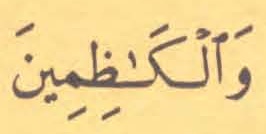 وَٱلْكَـٰظِمِينَ